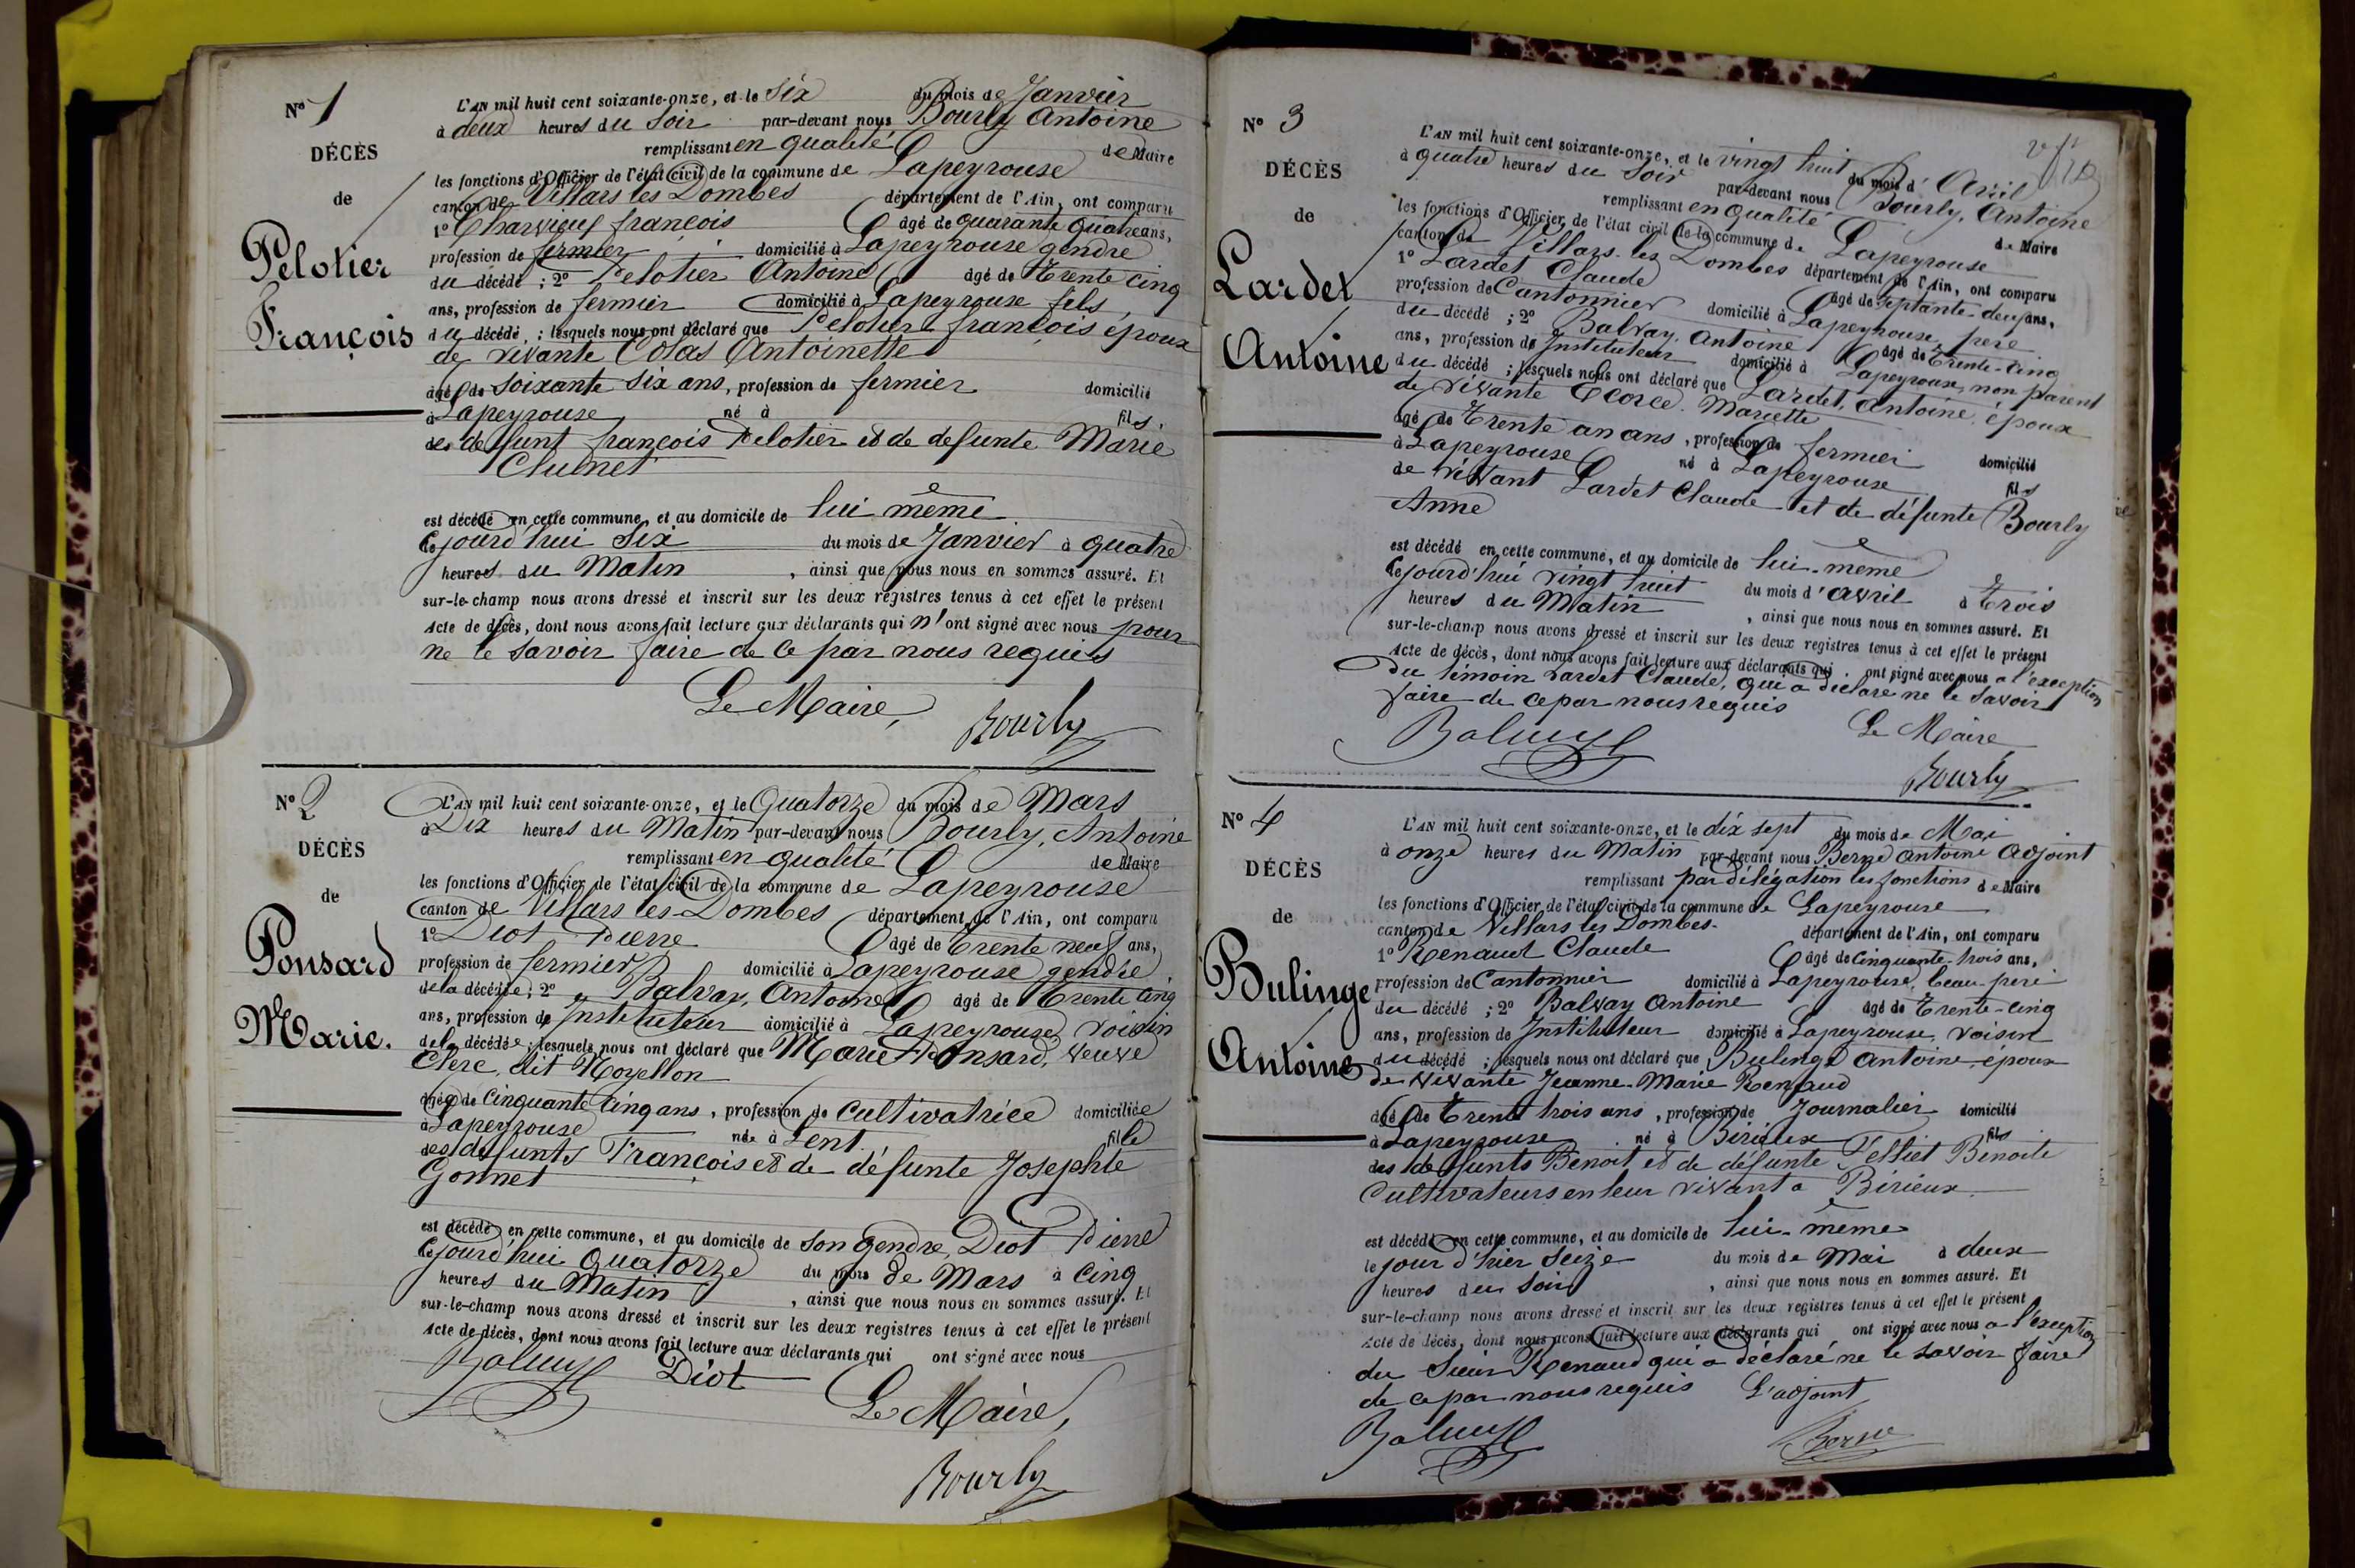 N° 1
DÉCÈS
de
Pelotier
François
L'AN mil huit cent soixante-onze, et le Six du mois de Janvier
à deux heures du Soir par-devant nous Bourly Antoine
remplissant en qualité de Maire
les fonctions d'Officier de l'état civil de la commune de Lapeyrouse
canton de Villars les Dombes département de l'Ain, ont comparu
1° françois âgé de quarante quatre ans,
profession de fermier domicilié à Lapeyrouse gendre
du décédé ; 2° Pelotier Antoine âgé de Trente cinq
ans, profession de fermier domicilié à Lapeyrouse fils
du décédé ; lesquels nous ont déclaré que Pelotier françois époux
de vivante Colas Antoinette
âgé de soixante six ans, profession de fermier domicilié
à Lapeyrouse né à fils
des defunt françois Pelotier et de defunte Marie
est décédé en cette commune, et au domicile de lui même
Cejourd'hui Six du mois de Janvier à quatre
heures du Matin, ainsi que nous nous en sommes assuré. Et
sur-le-champ nous avons dressé et inscrit sur les deux registres tenus à cet effet le présent
Acte de décès, dont nous avons fait lecture aux déclarants qui n'ont signé avec nous pour
ne le savoir faire de ce par nous requis
Le Maire,
Bourly
N° 2
DÉCÈS
de
Ponsard
Marie.
L'AN mil huit cent soixante-onze, et le Quatorze du mois de Mars
à Dix heures du Matin par-devant nous Bourly, Antoine
remplissant en qualité de Maire
les fonctions d'Officier de l'état civil de la commune de Lapeyrouse
canton de Villars les Dombes département de l'Ain, ont comparu
1° Diot Pierre âgé de Trente neuf ans,
profession de fermier domicilié à Lapeyrouse gendre
de la décédée ; 2° Balvay, Antoine âgé de Trente cinq
ans, profession de Instituteur domicilié à Lapeyrouse, voisin
de la décédée ; lesquels nous ont déclaré que Marie Ponsard, veuve
Clerc, dit
âgée de Cinquante Cinq ans, profession de Cultivatrice domiciliée
à Lapeyrouse née à Lent fille
des defunts François et de défunte Josephte
Gonnet
est décédé en cette commune, et au domicile de son gendre Diot Pierre
Cejourd'hui Quatorze du mois de Mars à Cinq
heures du Matin, ainsi que nous nous en sommes assuré. Et
sur-le-champ nous avons dressé et inscrit sur les deux registres tenus à cet effet le présent
Acte de décès, dont nous avons fait lecture aux déclarants qui ont signé avec nous
Balvay Diot
Le Maire,
Bourly
N° 3
DÉCÈS
de
Lardet
Antoine
L'AN mil huit cent soixante-onze, et le vingt huit du mois d'Avril
à quatre heures du Soir par-devant nous Bourly, Antoine
remplissant en qualité de Maire
les fonctions d'Officier de l'état civil de la commune de Lapeyrouse
canton de Villars les Dombes département de l'Ain, ont comparu
1° Lardet Claude âgé de septante-deux ans,
profession de Cantonnier domicilié à Lapeyrouse, père
du décédé ; 2° Balvay, Antoine âgé de Trente-Cinq
ans, profession de Instituteur domicilié à Lapeyrouse, non parent
du décédé ; lesquels nous ont déclaré que Lardet, Antoine, époux
de vivante Mariette
âgé de Trente un ans, profession de fermier domicilié
à Lapeyrouse né à Lapeyrouse fils
de vivant Lardet Claude et de défunte Bourly
Anne
est décédé en cette commune, et au domicile de lui-même
Cejourd'hui vingt huit du mois d'avril à Trois
heures du Matin, ainsi que nous nous en sommes assuré. Et
sur-le-champ nous avons dressé et inscrit sur les deux registres tenus à cet effet le présent
Acte de décès, dont nous avons fait lecture aux déclarants qui ont signé avec nous a l'exception
du témoin Lardet Claude, qui a déclaré ne le savoir
faire de ce par nous requis
Le Maire
Balvay
Bourly
N° 4
DÉCÈS
de
Bulinge
Antoine
L'AN mil huit cent soixante-onze, et le dix sept du mois de Mai
à onze heures du Matin par-devant nous Berne Antoine Adjoint
remplissant par délégation les fonctions de Maire
les fonctions d'Officier de l'état civil de la commune de Lapeyrouse
canton de Villars les Dombes. département de l'Ain, ont comparu
1° Renaud Claude âgé de Cinquante-trois ans,
profession de Cantonnier domicilié à Lapeyrouse, beau-père
du décédé ; 2° Balvay Antoine âgé de Trente-Cinq
ans, profession de Instituteur domicilié à Lapeyrouse, voisin
du décédé ; lesquels nous ont déclaré que Bulinge Antoine, époux
de vivante Jeanne-Marie Renaud
âgé de Trente trois ans, profession de Journalier domicilié
à Lapeyrouse né à Birieux fils
des defunts Benoit et de défunte Benoite
Cultivateurs en leur vivant a Birieux
est décédé en cette commune, et au domicile de lui-même
le jour d'hier Seize du mois de Mai à deux
heures du soir, ainsi que nous nous en sommes assuré. Et
sur-le-champ nous avons dressé et inscrit sur les deux registres tenus à cet effet le présent
Acte de décès, dont nous avons fait lecture aux déclarants qui ont signé avec nous a l'exception
du Sieur Renaud qui a déclaré ne le savoir faire
de ce par nous requis L'adjoint
Balvay
Berne